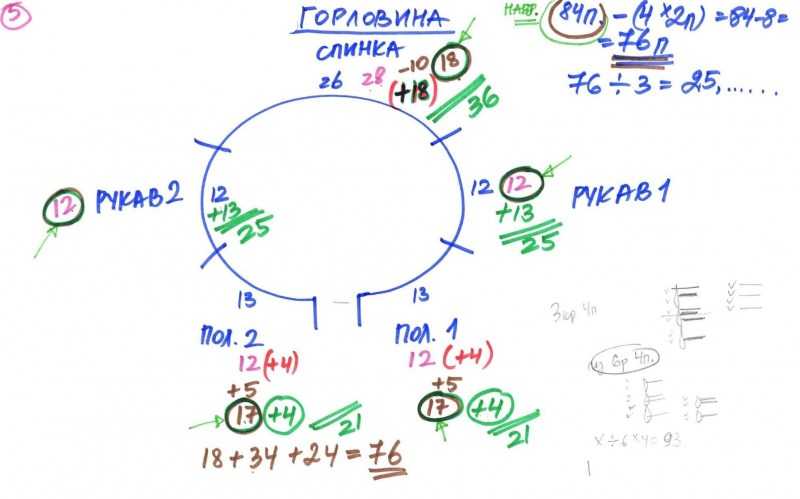 5
ГОРЛОВИНА
СПИНКА
НАБР. 84п. - (4 × 2п) = 84-8 =
= 76 п
76 ÷ 3 = 25, ......
26 28 -10 18
(+18) 36
12 РУКАВ 2 12
+13
25
12 12 РУКАВ 1
+13
25
13 13
ПОЛ. 2 ПОЛ. 1
12 (+4) 12 (+4)
+5 +5
17 +4 21 17 +4 21
18 + 34 + 24 = 76
6р 4п.
× ÷ 6 × 4 = 93